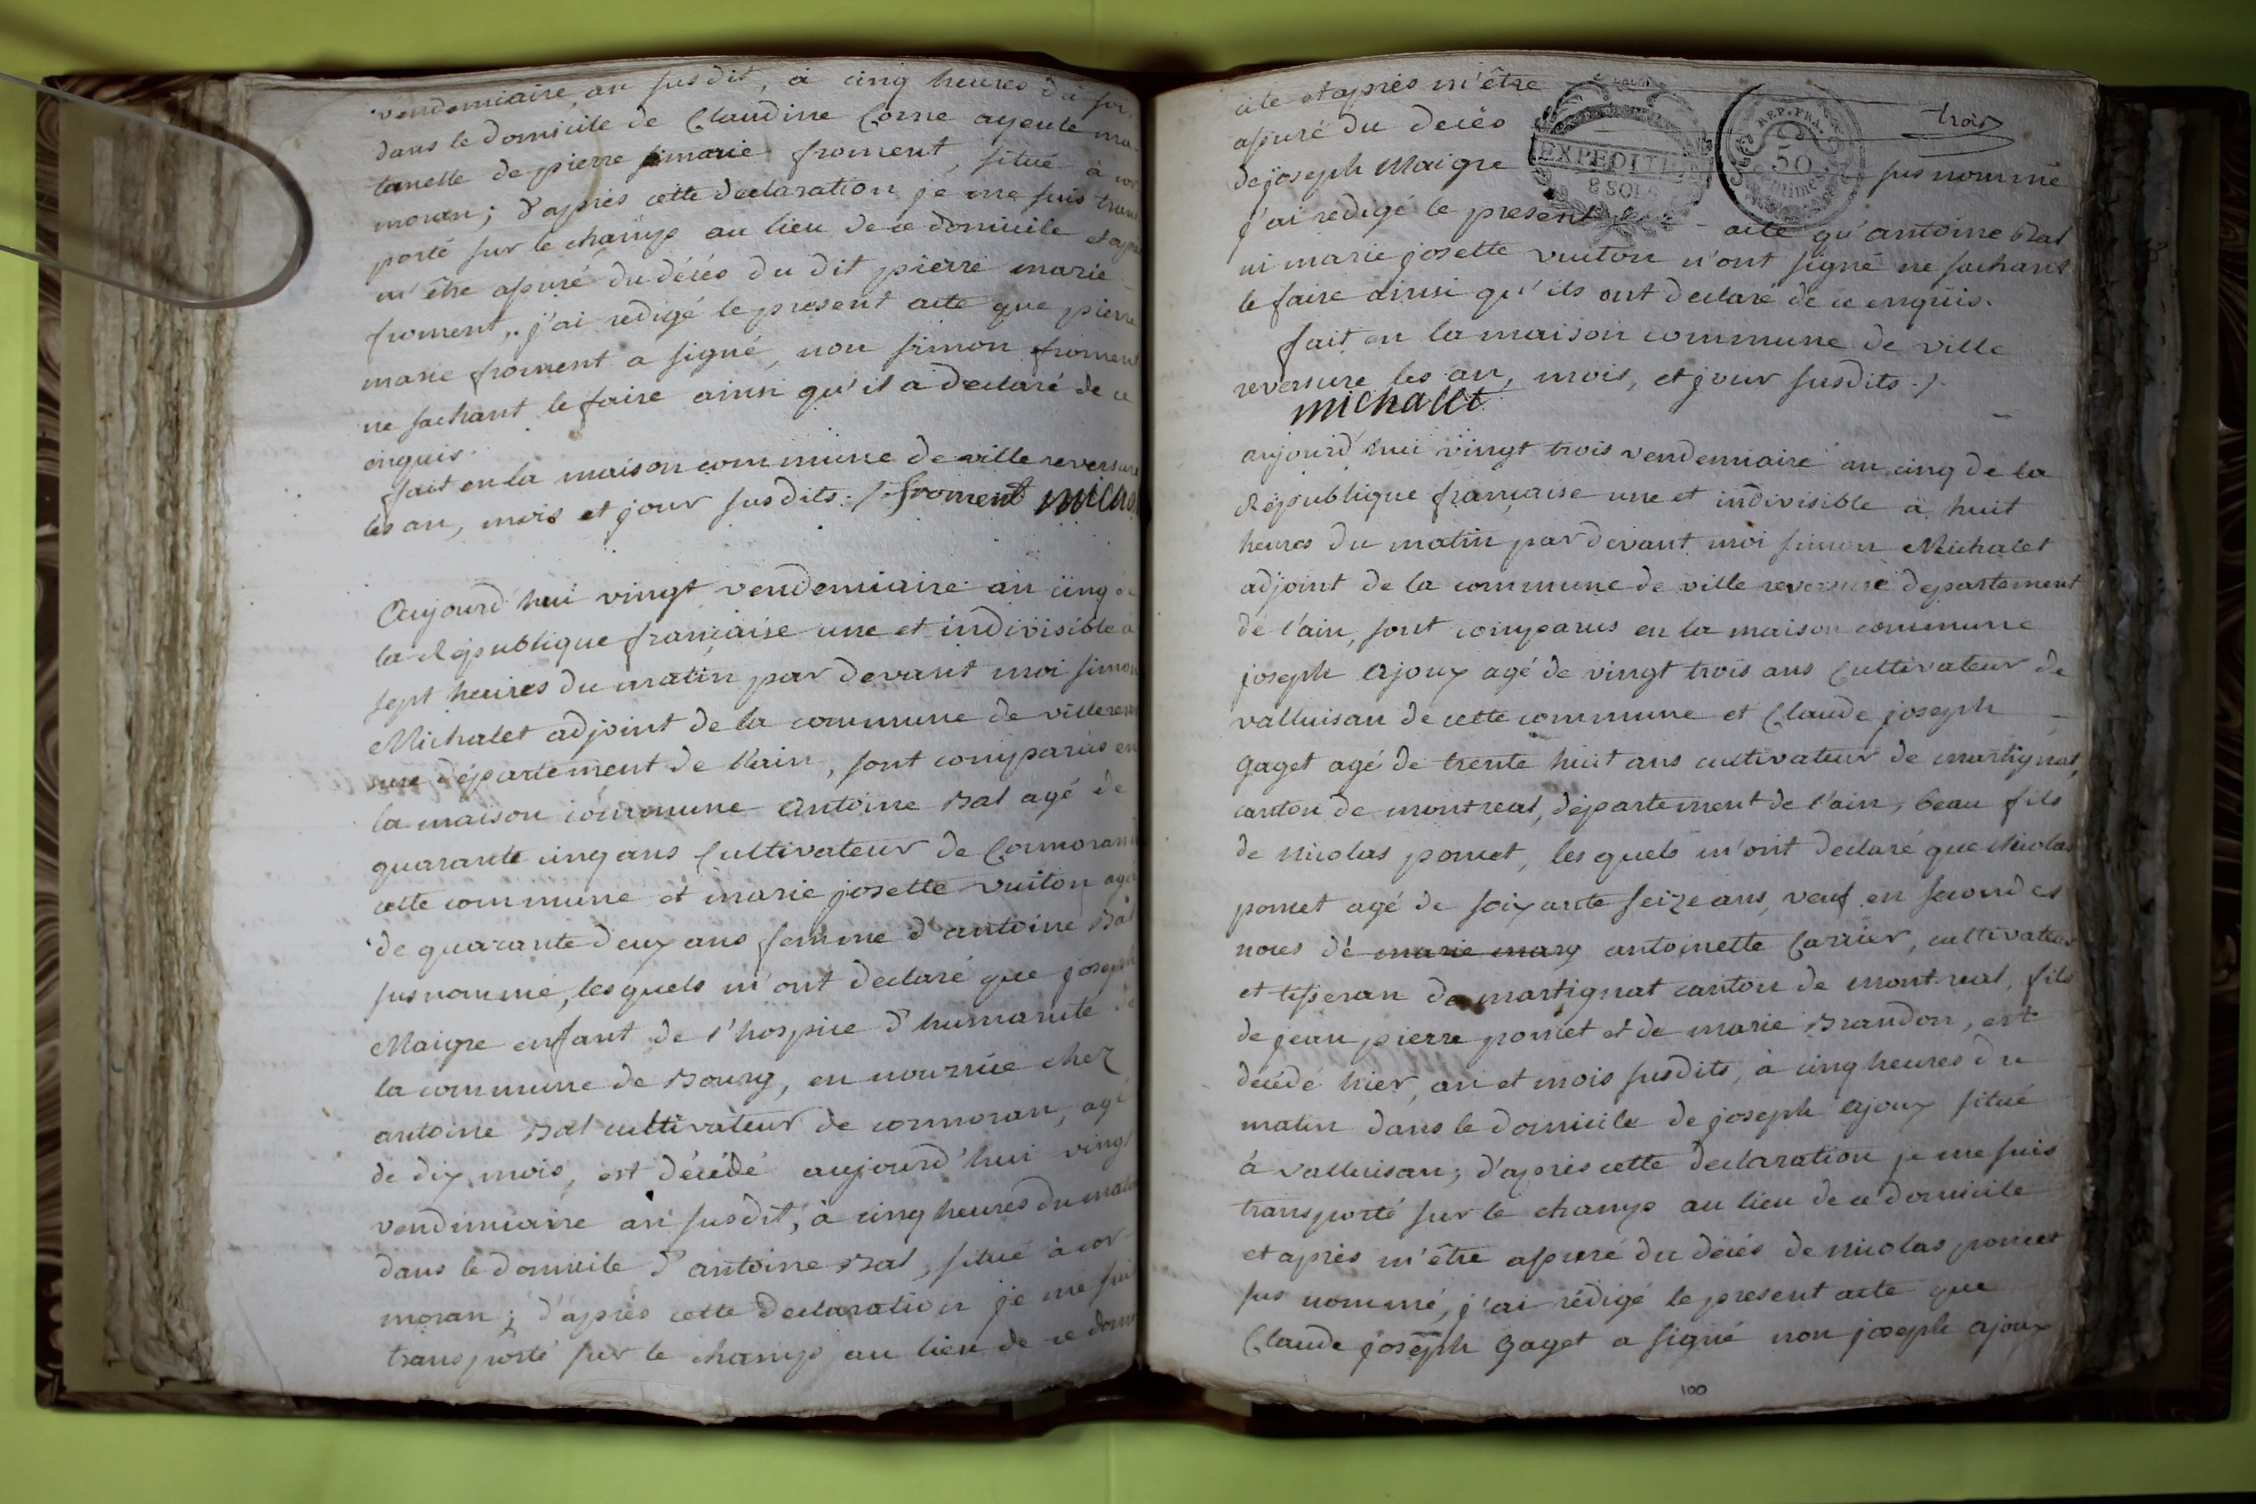 vendemiaire an susdit, à cinq heures du soir
dans le domicile de Claudine Corne ayeule ma-
ternelle de pierre marie froment, situé à cor
moran; d'après cette declaration je me suis trans
porté sur le champ au lieu de ce domicile et après
m'être assuré du décés du dit pierre marie
froment, j'ai redigé le present acte que pierre
marie froment a signé, non simon froment
ne sachant le faire ainsi qu'il a declaré de ce
enquis.
fait en la maison commune de ville reversure
les an, mois et jour susdits ./. froment micha
Aujourd'hui vingt vendemiaire an cinq de
la République française une et indivisible à
sept heures du matin par devant moi simon
Michalet adjoint de la commune de ville rever
sure département de l'ain, sont comparus en
la maison commune Antoine Bal agé de
quarante cinq ans Cultivateur de Cormoran
cette commune et marie josette vuiton agée
de quarante deux ans femme d'antoine Bal
susnommé, les quels m'ont declaré que joseph
Maigre enfant de l'hospice d'humanité de
la commune de Bourg, en nourrice chez
antoine Bal cultivateur de cormoran, agé
de dix mois, est décédé aujourd'hui vingt
vendimiaire an susdit, à cinq heures du matin
dans le domicile d'antoine Bal, situé à cor
moran; d'après cette declaration je me suis
transporté sur le champ au lieu de ce domi
cile et après m'être
assuré du decés
de joseph Maigre
EXPEDITION
8 SOLS
REP. FRA.
50
centimes
trois
sus nommé
j'ai redigé le present acte qu'antoine Bal
ni marie josette vuiton n'ont signé ne sachant
le faire ainsi qu'ils ont declaré de ce enquis.
fait en la maison commune de ville
reversure les an, mois, et jour susdits ./.
michalet
aujourd'hui vingt trois vendemiaire an cinq de la
République française une et indivisible à huit
heures du matin par devant moi simon Michalet
adjoint de la commune de ville reversure departement
de l'ain, sont comparus en la maison commune
joseph Ajoux agé de vingt trois ans Cultivateur de
valluisan de cette commune et Claude joseph
gaget agé de trente huit ans cultivateur de martignat,
canton de montreal, département de l'ain, beau fils
de nicolas poncet, les quels m'ont declaré que Nicolas
poncet agé de soixante seize ans, veuf en secondes
noces de marie mary antoinette Carrier, cultivateur
et tisseran de martignat canton de montreal, fils
de jean pierre poncet et de marie Brandon, est
décédé hier, an et mois susdits, à cinq heures du
matin dans le domicile de joseph Ajoux situé
à valluisan; d'après cette declaration je me suis
transporté sur le champ au lieu de ce domicile
et après m'être assuré du décés de nicolas poncet
sus nommé, j'ai rédigé le present acte que
Claude joseph gaget a signé non joseph ajoux
100